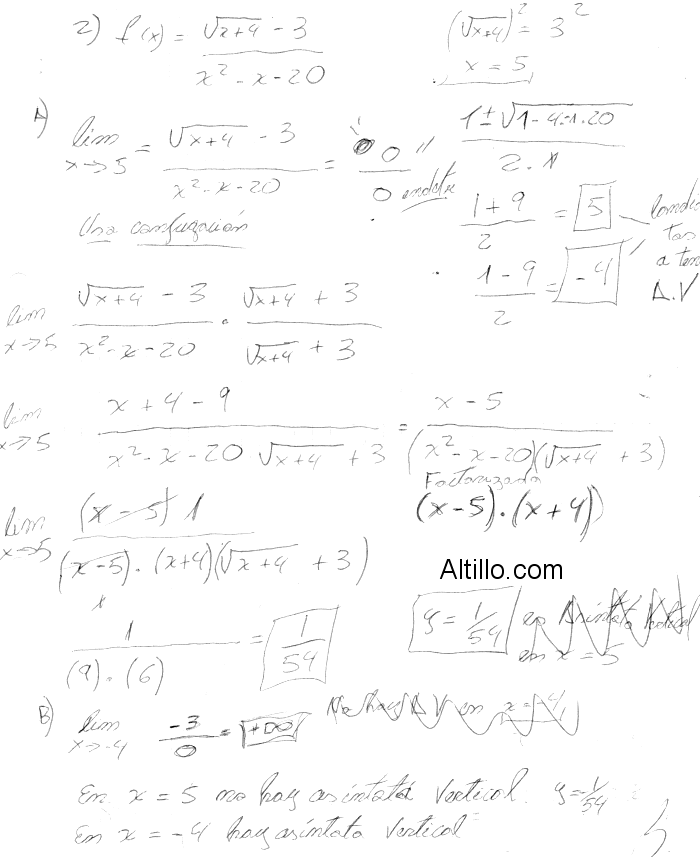 2) f(x) = √x+4 - 3 / x² - x - 20
(√x+4)² = 3²
x = 5
A)
lim x→5 = √x+4 - 3 / x² - x - 20 = 0 / 0 "
1 ± √1 - 4.1.20 / 2.1
1 + 9 / 2 = 5
1 - 9 / 2 = -4
a ten
A.V
Uso
lim x→5 √x+4 - 3 / x² - x - 20 · √x+4 + 3 / √x+4 + 3
lim x→5 x + 4 - 9 / x² - x - 20 √x+4 + 3 = x - 5 / (x² - x - 20)(√x+4 + 3)
Factorizada
(x-5).(x+4)
lim x→5 (x-5) 1 / (x-5).(x+4)(√x+4 + 3)
1
Altillo.com
1 / (9).(6) = 1/54
y = 1/54 es Asíntota Vertical
en x = 5
B) lim x→-4 -3 / 0 = +∞
No hay A V en x = -4
En x = 5 no hay asíntota vertical. y = 1/54
En x = -4 hay asíntota vertical